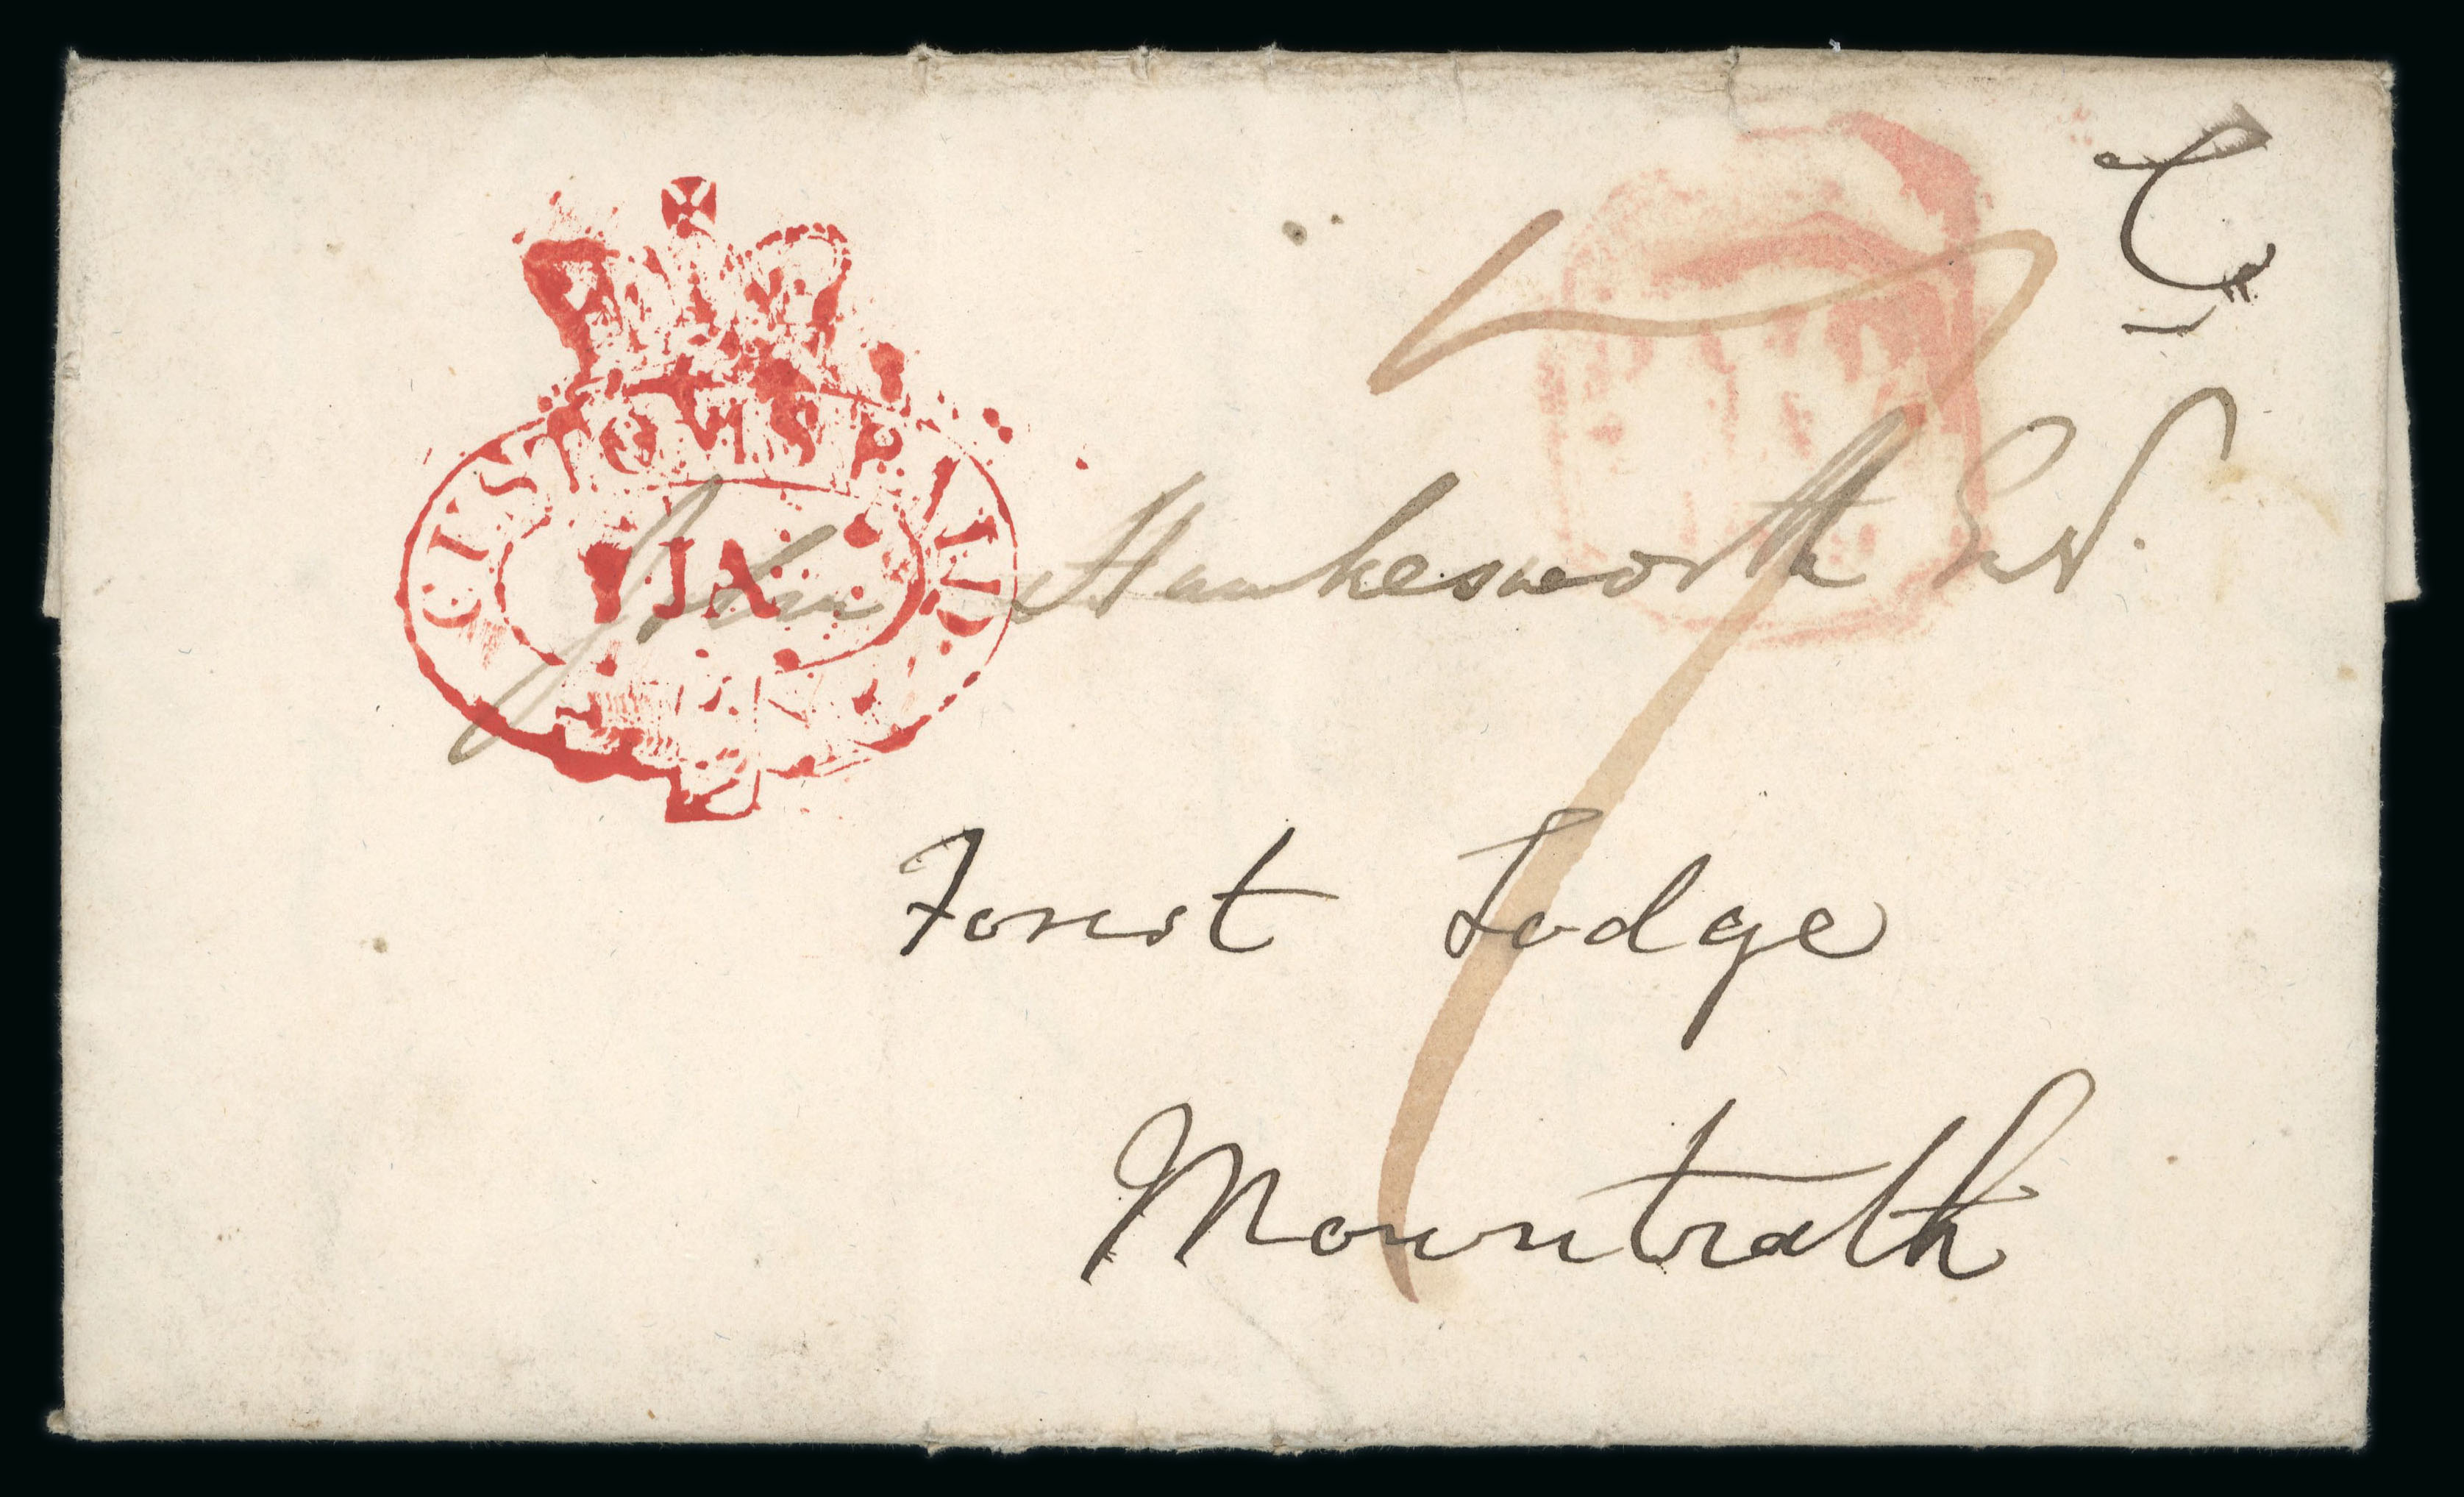 CUSTOMS
John Hawkesworth Esq.
Forest Lodge
Mountrath
7